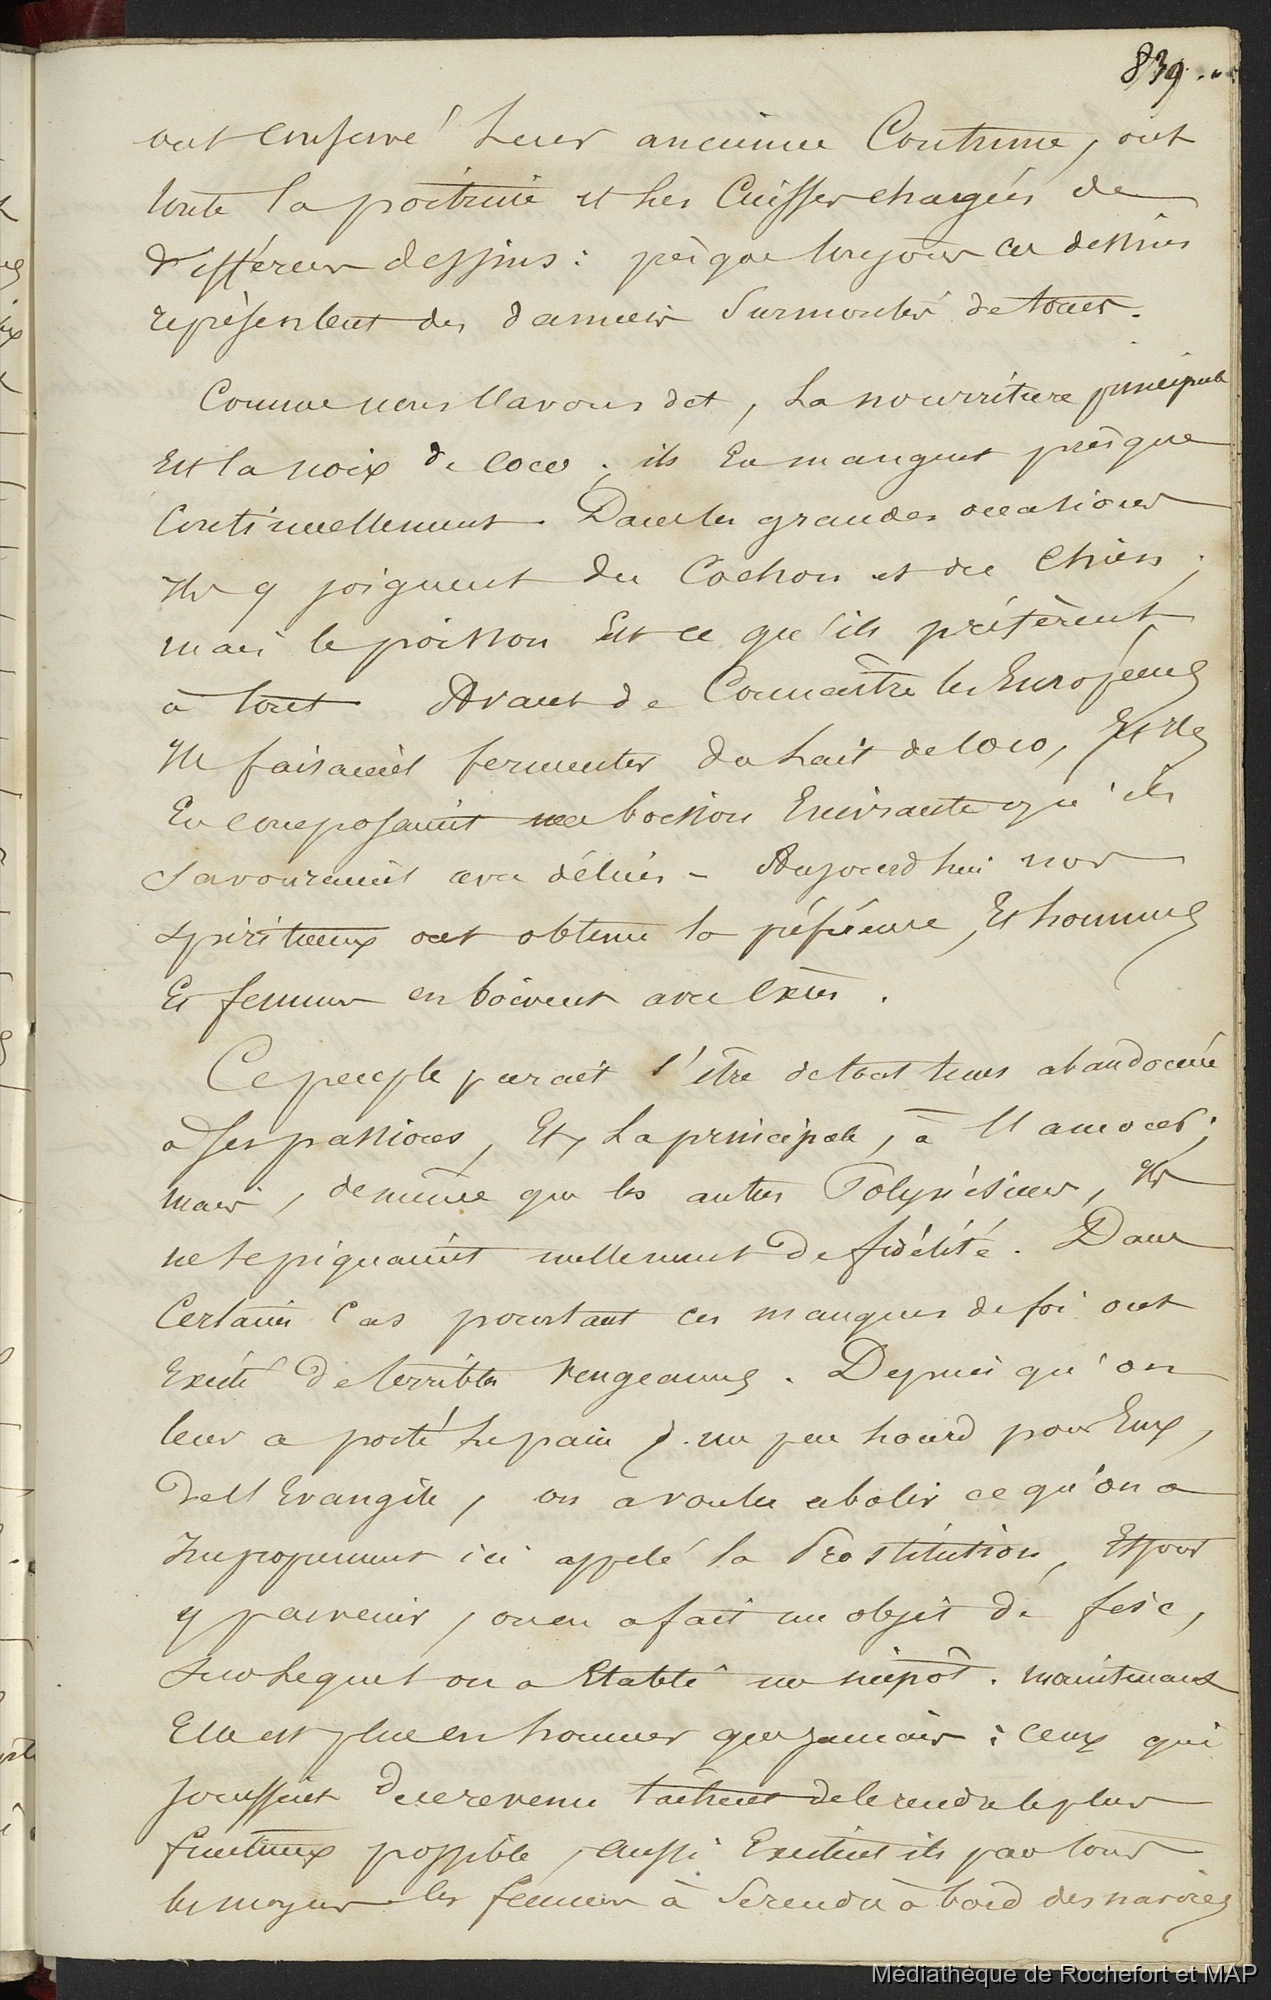 839...
ont conservé leur ancienne Coutume, ont
toute la poitrine et les Cuisses chargées de
différens dessins : présque toujours ces dessins
représentent des damiers surmontés de
Comme nous l'avons dit, la nourriture principale
Est la noix de coco ; ils En mangent présque
Continuellement. Dans les grandes occasions
Ils y joignent du Cochon et du Chien ;
mais le poisson Est ce qu'ils préférent
à tout. Avant de Connaître les Européens
Ils faisaient fermenter du lait de coco, Et ils
En composaient une boisson Enivrante qu'ils
savouraient avec délices - Aujourd'hui nos
spiritueux ont obtenu la préférence, Et hommes
Et femmes en boivent avec Excès.
Ce peuple parait s'être de tout tems abandonné
à ses passions, Et, la principale, à l'amour ;
mais, de même que les autres Polynésiens, ils
ne se piquaient nullement de fidélité. Dans
Certains Cas pourtant ces manques de foi ont
Excité de terribles vengeances. Depuis qu'on
leur a porté le pain, un peu lourd pour Eux,
de l'Evangile, on a voulu abolir ce qu'on a
Improprement ici appelé la Prostitution, Et pour
y parvenir, on en a fait un objet de fisc,
sur lequel on a Etabli un impôt. Maintenant
Elle est plus en honneur que jamais : Ceux qui
jouissent du revenu tâchent de le rendre le plus
fructueux possible, aussi Excitent ils par tous
les moyens les femmes à se rendre à bord des navires
Médiathèque de Rochefort et MAP